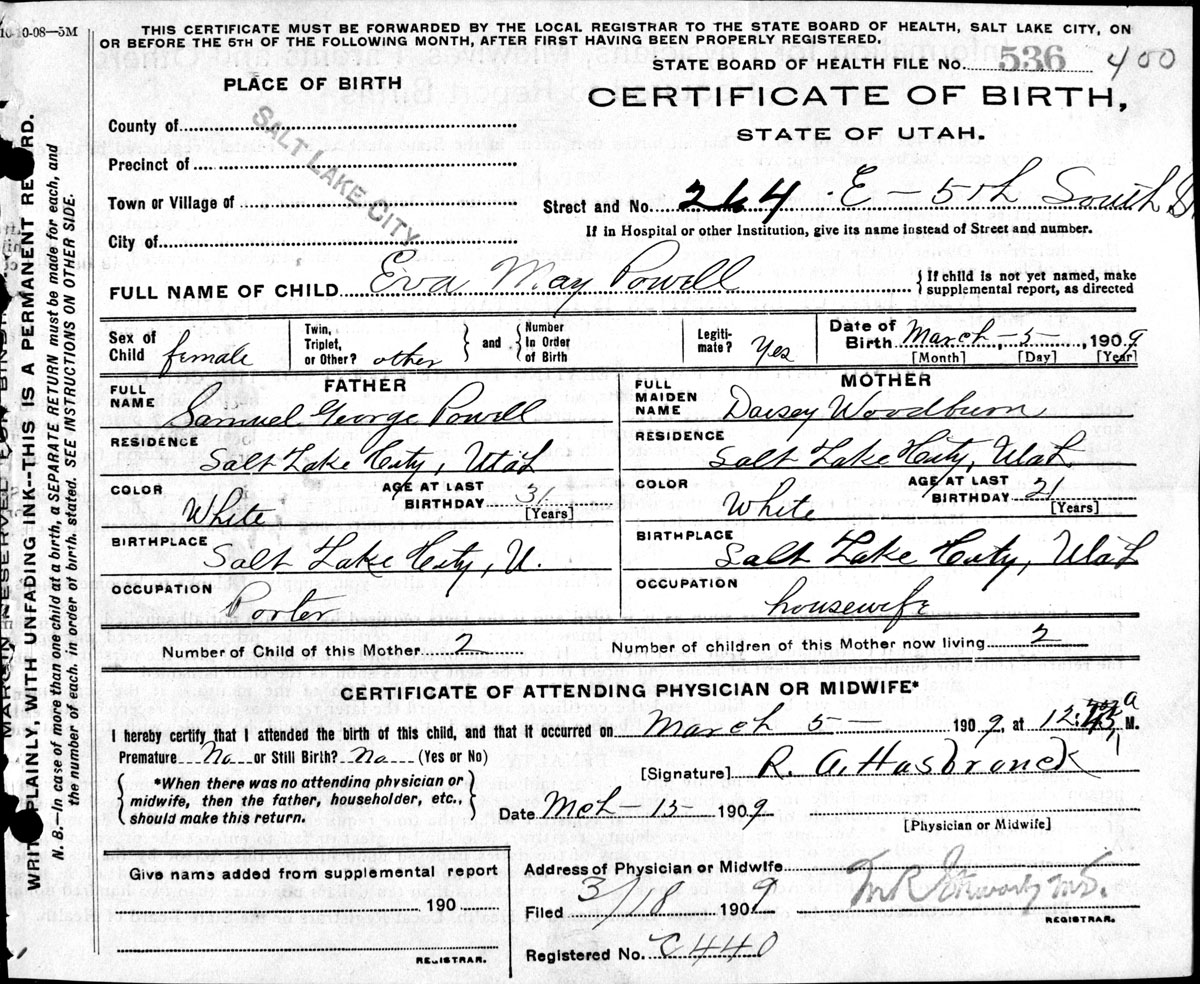 10-10-08—5M
THIS CERTIFICATE MUST BE FORWARDED BY THE LOCAL REGISTRAR TO THE STATE BOARD OF HEALTH, SALT LAKE CITY, ON
OR BEFORE THE 5TH OF THE FOLLOWING MONTH, AFTER FIRST HAVING BEEN PROPERLY REGISTERED.
STATE BOARD OF HEALTH FILE No. 536 400
PLACE OF BIRTH
CERTIFICATE OF BIRTH,
STATE OF UTAH.
County of
Precinct of
Town or Village of
City of
SALT LAKE CITY
Street and No. 264 · E — 5th South St
If in Hospital or other Institution, give its name instead of Street and number.
FULL NAME OF CHILD Eva May Powell
{ If child is not yet named, make
supplemental report, as directed
Sex of
Child female
Twin,
Triplet,
or Other? other
and
Number
In Order
of Birth
Legiti-
mate? Yes
Date of
Birth March, 5, 1909
[Month] [Day] [Year]
FATHER
FULL
NAME Samuel George Powell
RESIDENCE
Salt Lake City, Utah
COLOR White
AGE AT LAST
BIRTHDAY 31
[Years]
BIRTHPLACE
Salt Lake City, U.
OCCUPATION
Porter
MOTHER
FULL
MAIDEN
NAME Daisey Woodburn
RESIDENCE
Salt Lake City, Utah
COLOR White
AGE AT LAST
BIRTHDAY 21
[Years]
BIRTHPLACE
Salt Lake City, Utah
OCCUPATION
housewife
Number of Child of this Mother 2
Number of children of this Mother now living 2
CERTIFICATE OF ATTENDING PHYSICIAN OR MIDWIFE*
I hereby certify that I attended the birth of this child, and that it occurred on March 5 — 1909, at 12: a M.
Premature No or Still Birth? No (Yes or No)
*When there was no attending physician or
midwife, then the father, householder, etc.,
should make this return.
[Signature] R. A. Hasbrouck
Date Mch — 15 — 1909
[Physician or Midwife]
Give name added from supplemental report
190
REGISTRAR.
Address of Physician or Midwife
Filed 3/18 1909
M.D.
REGISTRAR.
Registered No. C440
WRITE PLAINLY, WITH UNFADING INK--THIS IS A PERMANENT RECORD.
N. B.—In case of more than one child at a birth, a SEPARATE RETURN must be made for each, and
the number of each, in order of birth, stated. SEE INSTRUCTIONS ON OTHER SIDE.